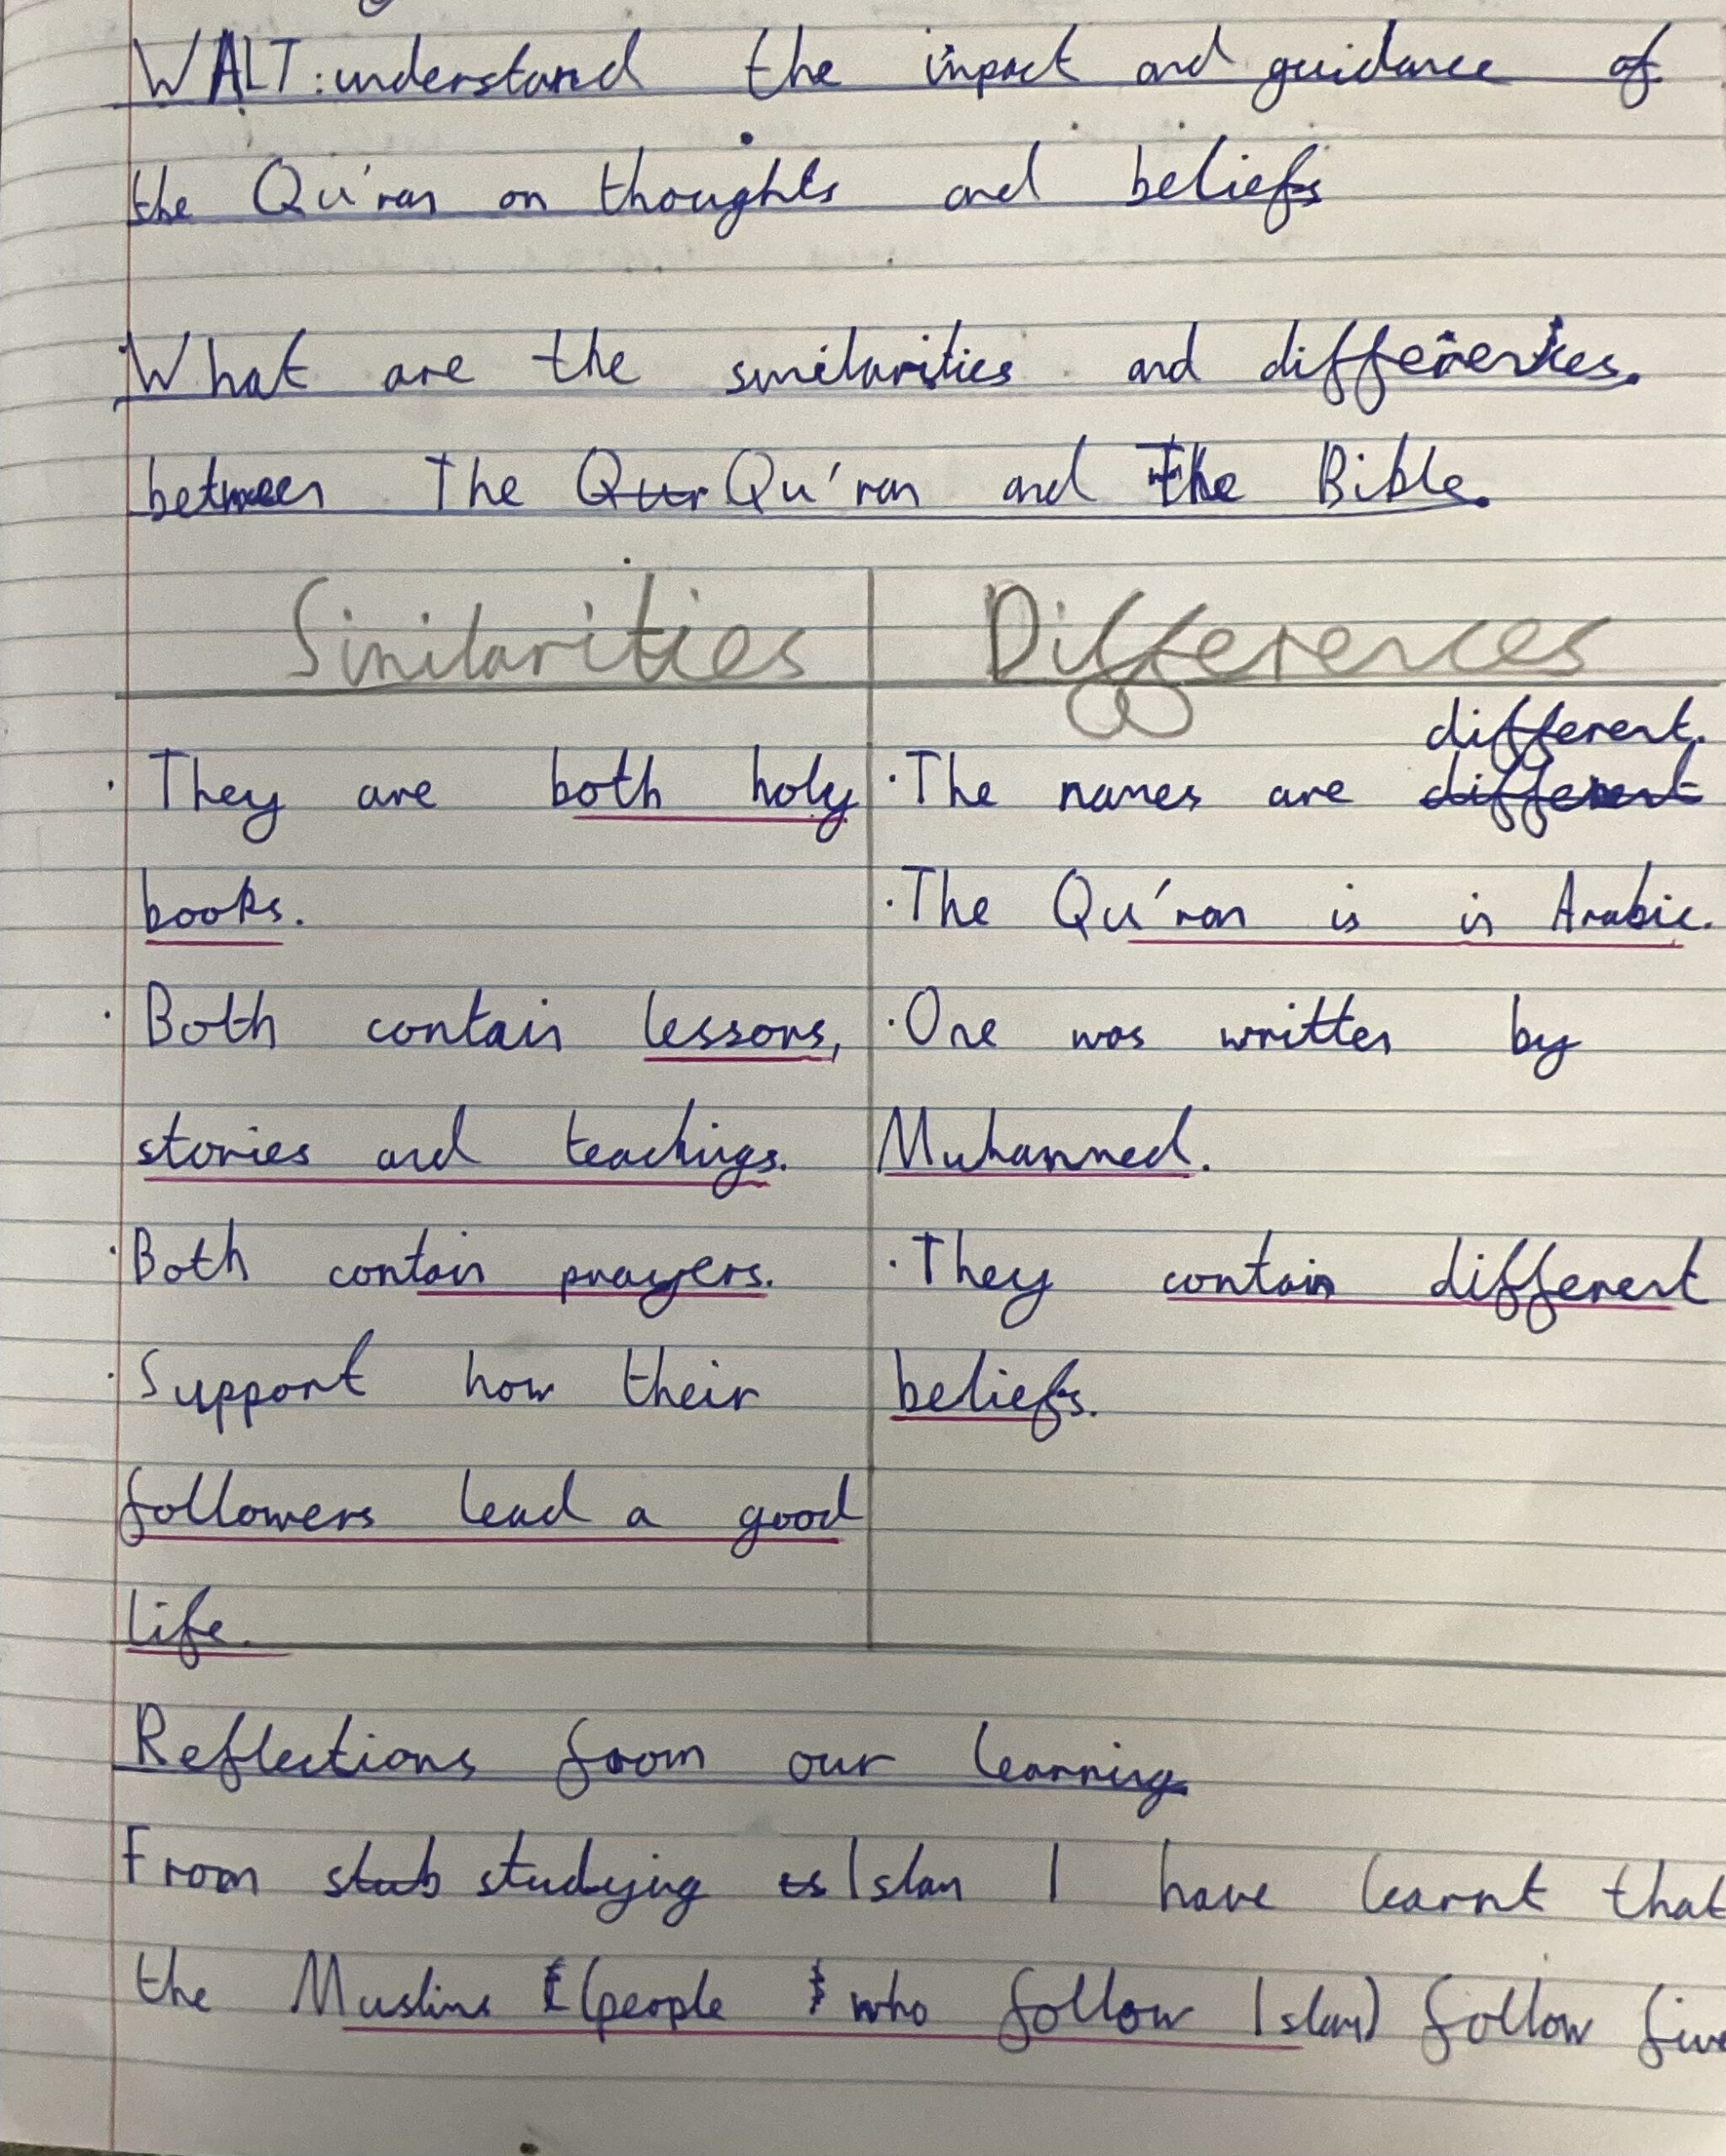 WALT: understand the impact and guidance of
the Qu'ran on thoughts and beliefs
What are the similarities and differences.
between The Qur Qu'ran and The Bible.
Similarities
Differences
· They are both holy
books.
· Both contain lessons,
stories and teachings.
· Both contain prayers.
· Support how their
followers lead a good
life.
different.
· The names are different
· The Qu'ran is in Arabic.
· One was written by
Muhammed.
· They contain different
beliefs.
Reflections from our learning
From stub studying is Islam I have learnt that
the Muslims (people who follow Islam) follow five